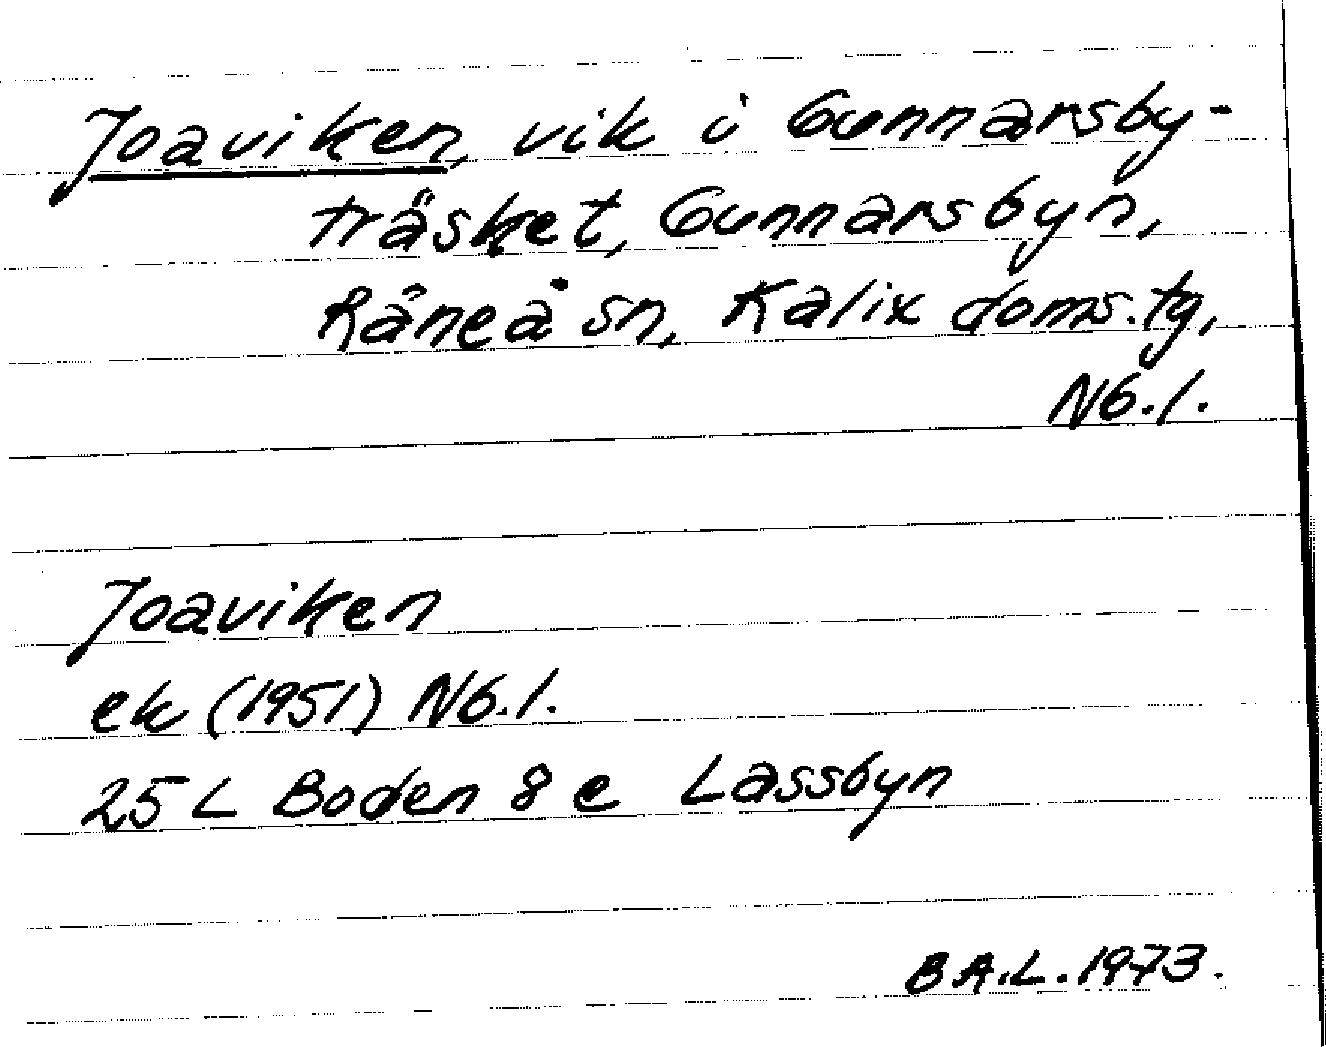 Joaviken, vik i Gunnarsby-
träsket, Gunnarsbyn,
Råneå sn, Kalix doms.tg,
Nb.l.
Joaviken
ek (1951) Nb.l.
25 L Boden 8 e Lassbyn
B A.L. 1973.